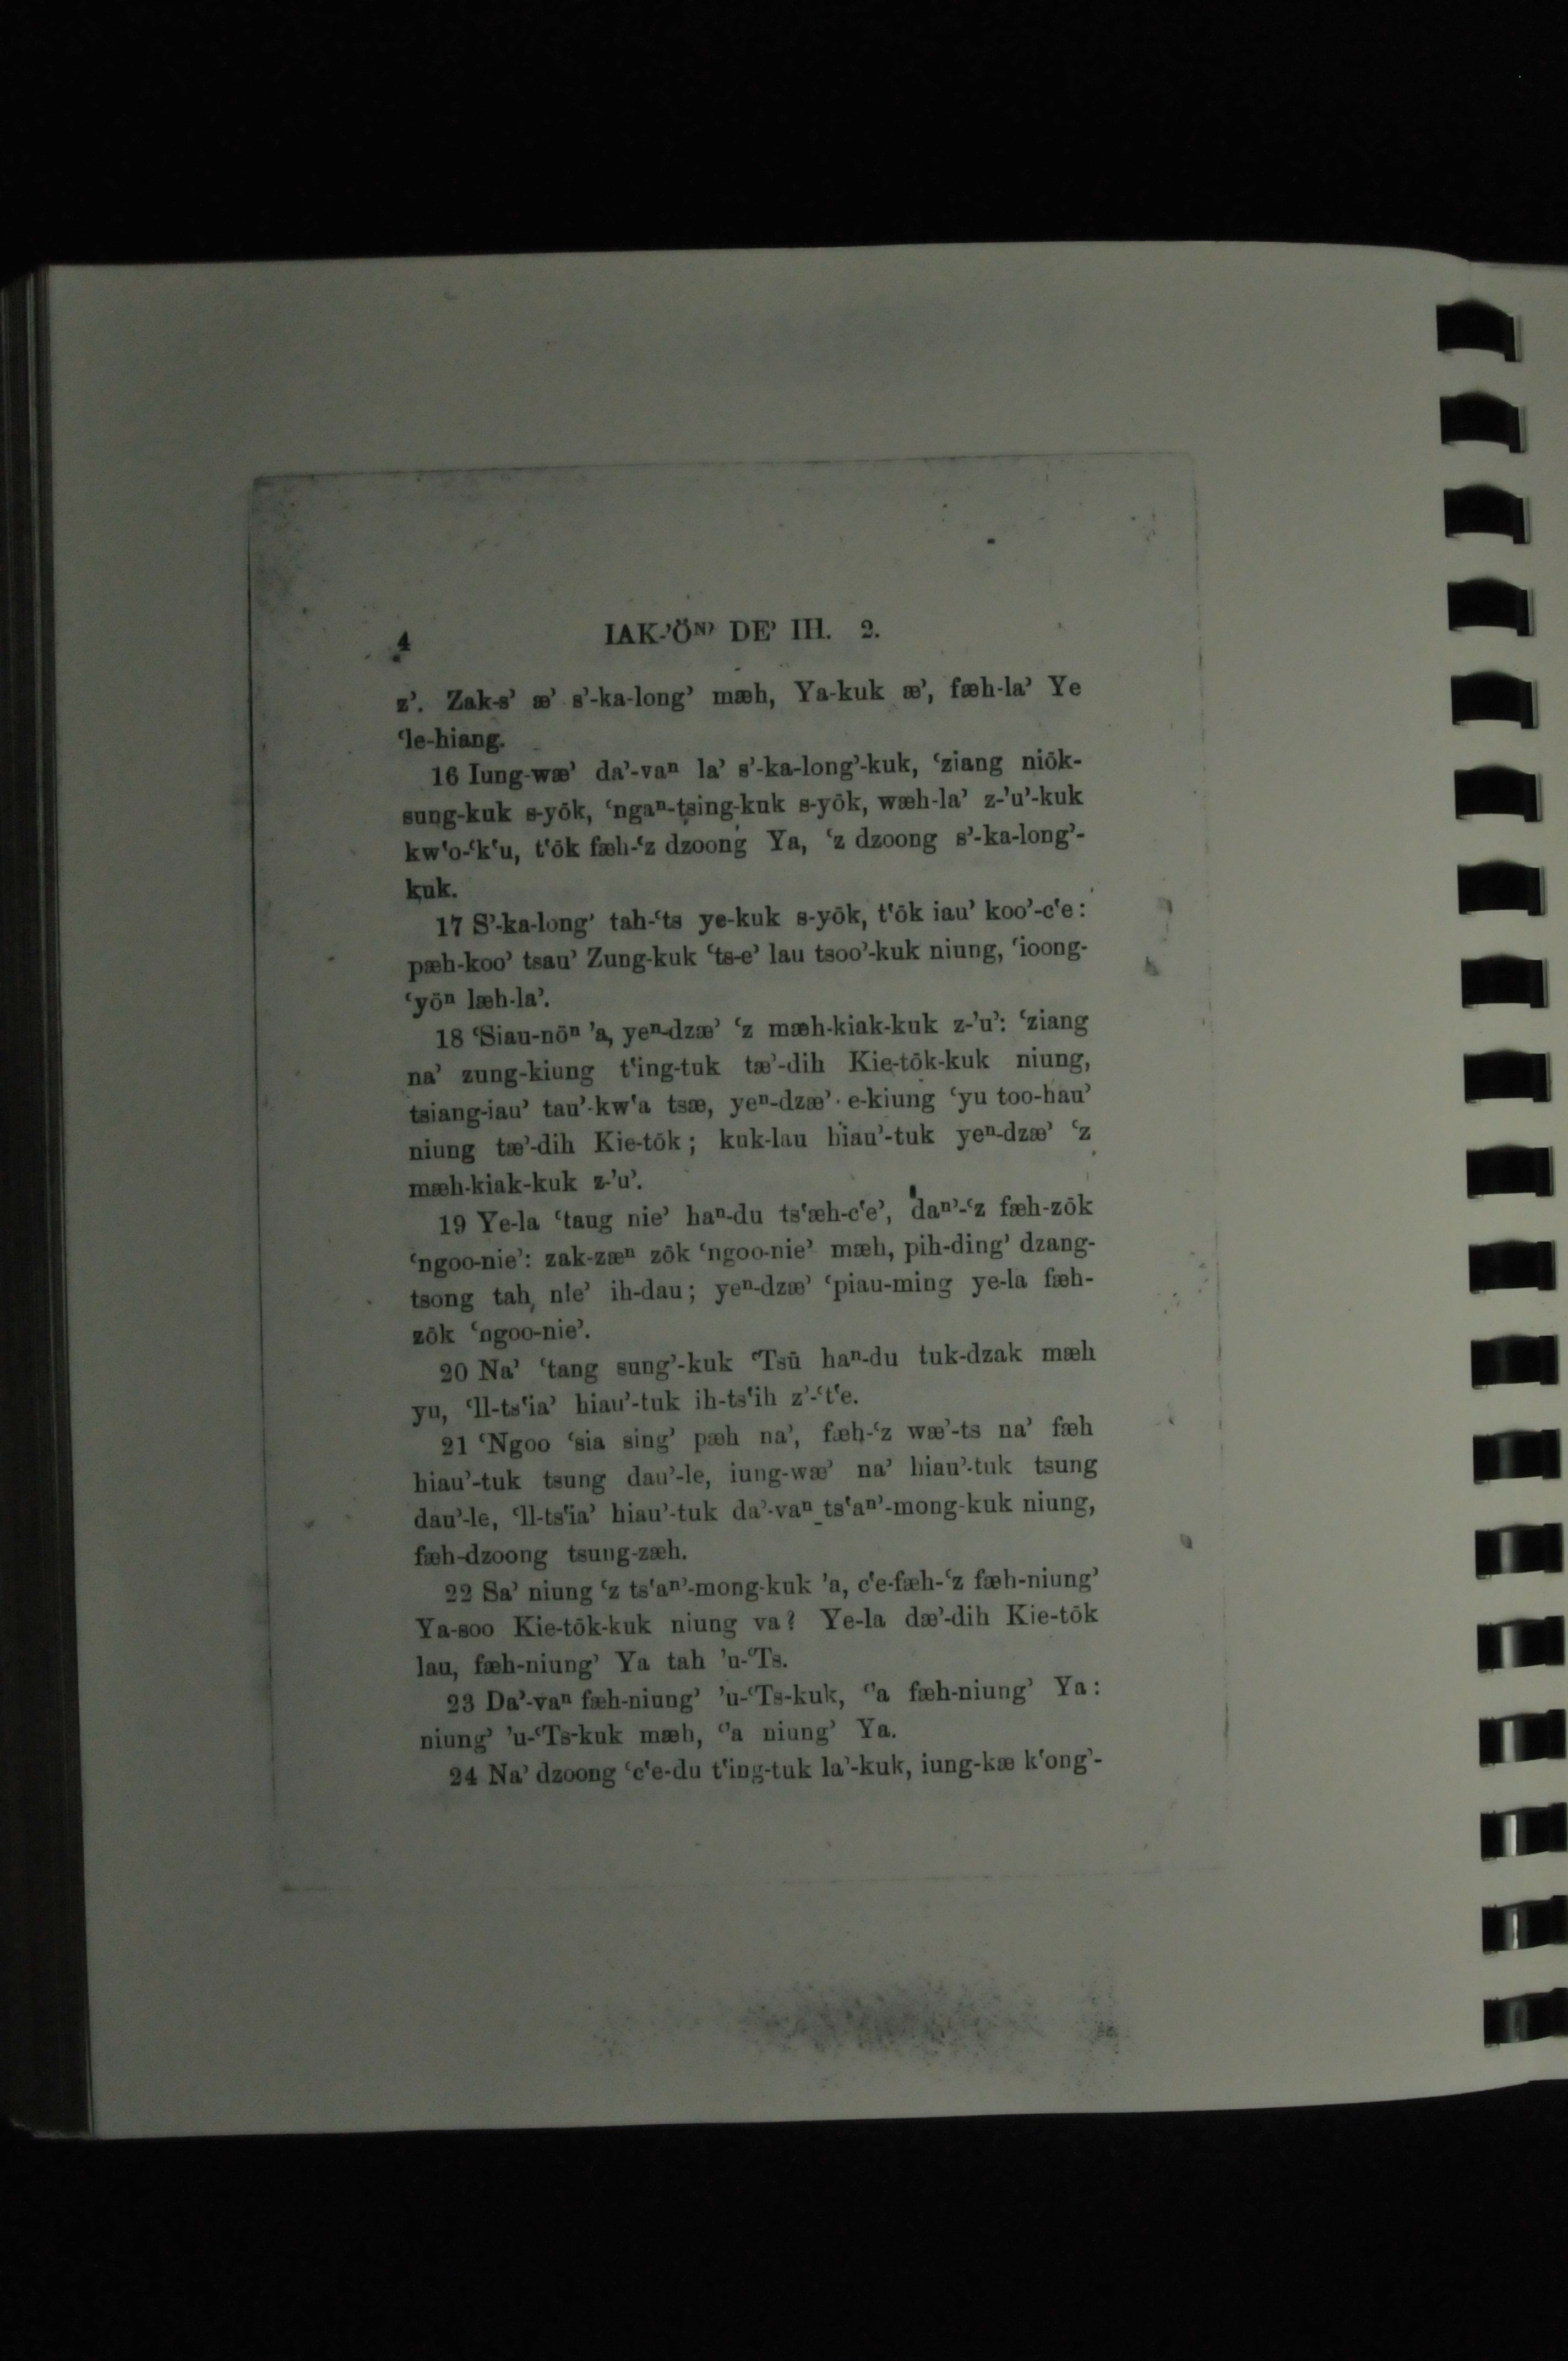 4 IAK-’Öᴺ’ DE’ IH. 2.
z’. Zak-s’ æ’ s’-ka-long’ mæh, Ya-kuk æ’, fæh-la’ Ye
‘le-hiang.
16 Iung-wæ’ da’-vaⁿ la’ s’-ka-long’-kuk, ‘ziang niök-
sung-kuk s-yök, ‘ngaⁿ-tsing-kuk s-yök, wæh-la’ z-’u’-kuk
kw‘o-‘k‘u, t‘ök fæh-‘z dzoong Ya, ‘z dzoong s’-ka-long’-
kuk.
17 S’-ka-long’ tah-‘ts ye-kuk s-yök, t‘ök iau’ koo’-c‘e:
pæh-koo’ tsau’ Zung-kuk ‘ts-e’ lau tsoo’-kuk niung, ‘ioong-
‘yöⁿ læh-la’.
18 ‘Siau-nöⁿ ’a, yeⁿ-dzæ’ ‘z mæh-kiak-kuk z-’u’: ‘ziang
na’ zung-kiung t‘ing-tuk tæ’-dih Kie-tök-kuk niung,
tsiang-iau’ tau’-kw‘a tsæ, yeⁿ-dzæ’ e-kiung ‘yu too-hau’
niung tæ’-dih Kie-tök; kuk-lau hiau’-tuk yeⁿ-dzæ’ ‘z
mæh-kiak-kuk z-’u’.
19 Ye-la ‘taug nie’ haⁿ-du ts‘æh-c‘e’, daⁿ’-‘z fæh-zök
‘ngoo-nie’: zak-zæⁿ zök ‘ngoo-nie’ mæh, pih-ding’ dzang-
tsong tah nie’ ih-dau; yeⁿ-dzæ’ ‘piau-ming ye-la fæh-
zök ‘ngoo-nie’.
20 Na’ ‘tang sung’-kuk ‘Tsü haⁿ-du tuk-dzak mæh
yu, ‘ll-ts‘ia’ hiau’-tuk ih-ts‘ih z’-‘t‘e.
21 ‘Ngoo ‘sia sing’ pæh na’, fæh-‘z wæ’-ts na’ fæh
hiau’-tuk tsung dau’-le, iung-wæ’ na’ hiau’-tuk tsung
dau’-le, ‘ll-ts‘ia’ hiau’-tuk da’-vaⁿ ts‘aⁿ’-mong-kuk niung,
fæh-dzoong tsung-zæh.
22 Sa’ niung ‘z ts‘aⁿ’-mong-kuk ’a, c‘e-fæh-‘z fæh-niung’
Ya-soo Kie-tök-kuk niung va? Ye-la dæ’-dih Kie-tök
lau, fæh-niung’ Ya tah ’u-‘Ts.
23 Da’-vaⁿ fæh-niung’ ’u-‘Ts-kuk, ‘’a fæh-niung’ Ya:
niung’ ’u-‘Ts-kuk mæh, ‘’a niung’ Ya.
24 Na’ dzoong ‘c‘e-du t‘ing-tuk la’-kuk, iung-kæ k‘ong’-